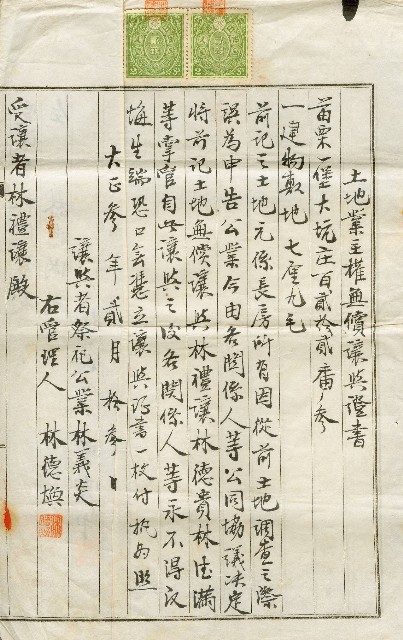 土地業主權無償讓與證書
苗栗一堡大坑庄百貳拾貳番ノ參
一建物敷地 七厘九毛
前記之土地元係長房所有因從前土地調查之際
誤為申告公業今由各關係人等公同協議決定
將前記土地無償讓與林禮讓林德貴林佳滿
等掌管自此讓與之後各關係人等永不得反
悔生端恐口無憑立讓與證書一枚付執為照
大正參年貳月拾參日
讓與者祭祀公業林義炎
右管理人 林德
受讓者林禮讓殿